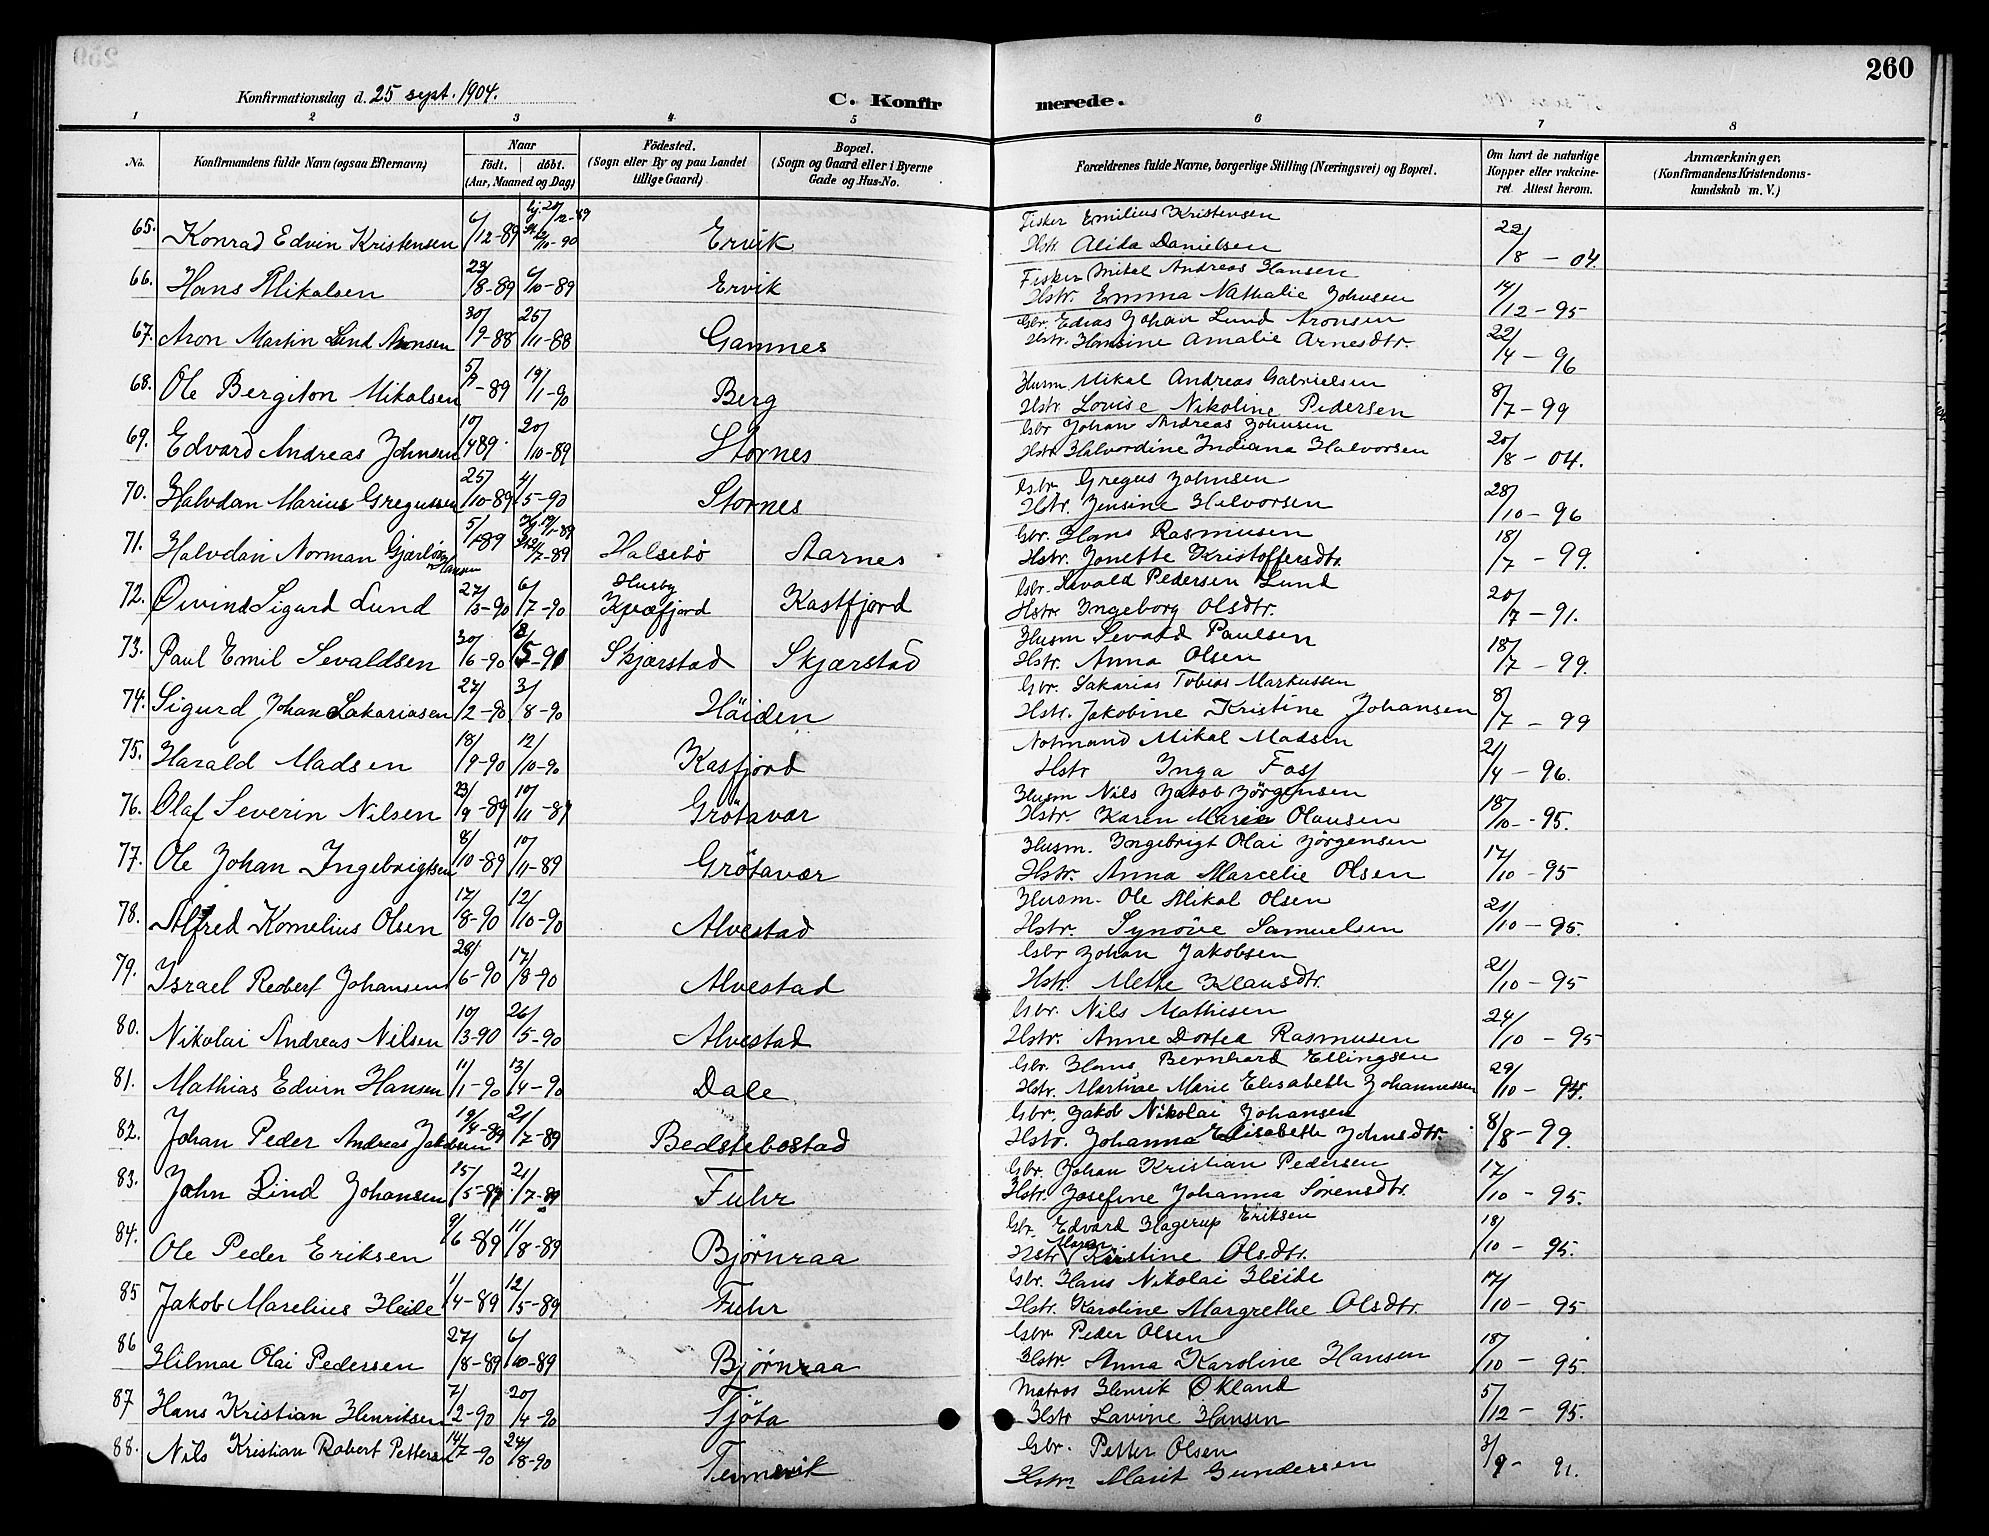 260
Konfirmationsdag d. 25 sept. 1904.
C. Konfirmerede.
1 2 3 4 5 6 7 8
No. Konfirmandens fulde Navn (ogsaa Efternavn) Naar født. døbt. (Aar, Maaned og Dag) Fødested. (Sogn eller By og paa Landet tillige Gaard) Bopæl. (Sogn og Gaard eller i Byerne Gade og Hus-No. Forældrenes fulde Navne, borgerlige Stilling (Næringsvei) og Bopæl. Om havt de naturlige Kopper eller vakcineret. Attest herom. Anmærkninger. (Konfirmandens Kristendomskundskab m. V.)
65. Konrad Edvin Kristensen 6/12-89 hj. 20/12-89 /10-90 Ervik Fisker Emilius Kristensen 22/8-04.
Hstr. Alida Danielsen
66. Hans Mikalsen 23/8-89 6/10-89 Ervik Fisker Mikal Andreas Hansen 14/12-95
Hstr. Emma Nathalie Johnsen
67. Aron Martin Lund Aronsen 30/9-88 25/11-88 Gamnes Gbr. Edias Johan Lund Aronsen 22/4-96
Hstr. Hansine Amalie Arnesdtr.
68. Ole Bergiton Mikalsen 5/-89 19/1-90 Berg Husm. Mikal Andreas Gabrielsen 8/7-99
Hstr. Lovise Nikoline Pedersen
69. Edvard Andreas Johnsen 10/4 89. 20/10-89 Stornes Gbr Johan Andreas Johnsen 20/8-04.
Hstr. Halvordine Indiana Halvorsen
70. Halvdan Marius Gregussen 25/10-89 4/5-90 Stornes Gbr. Gregus Johnsen 28/10-96
Hstr. Jensine Halvorsen
71. Halvdan Norman Hansen 5/1-89 /7-89 Halsebö Aarnes Gbr. Hans Rasmusen 18/7-99.
Hstr. Jonette Kristoffersdtr.
72. Øivind Sigurd Lund 27/3-90 6/7-90 Husby Kvæfjord Kastfjord Gbr. Sevald Pedersen Lund 20/7-91.
Hstr. Ingeborg Olsdtr.
73. Paul Emil Sevaldsen 30/6-90 18/5-91 Skjærstad Skjærstad Husm Sevald Paulsen 18/7-99.
Hstr. Anna Olsen
74. Sigurd Johan Sakariasen 27/2-90 3/8-90 Häiden Gbr. Sakarias Tobias Markussen 8/7-99
Hstr. Jakobine Kristine Johansen
75. Harald Madsen 18/9-90 12/10-90 Kasfjord Notmand Mikal Madsen 21/4-96.
Hstr Inga Foss
76. Olaf Severin Nilsen 23/9-89 10/11-89 Grötavær Husm Nils Jakob Jörgensen 18/10-95.
Hstr. Karen Marie Olausen
77. Ole Johan Ingebrigtsen 8/10-89 10/11-89 Grötavær Husm. Ingebrigt Olai Jörgensen 17/10-95
Hstr. Anna Marcelie Olsen
78. Alfred Kornelius Olsen 17/8-90 12/10-90 Alvestad Husm. Ole Mikal Olsen 21/10-95.
Hstr. Synöve Samuelsen
79. Israel Robert Johansen 28/6-90 17/8-90 Alvestad Gbr Johan Jakobsen 21/10-95
Hstr. Mette Klausdtr.
80. Nikolai Andreas Nilsen 10/3-90 26/5-90 Alvestad Gbr. Nils Mathisen 24/10-95
Hstr. Anne Dortea Rasmusen
81. Mathias Edvin Hansen 11/1-90 13/4-90 Dale Gbr. Hans Bernhard Ellingsen 29/10-95.
Hstr. Martine Marie Elisabeth Johannessen
82. Johan Peder Andreas Jakobsen 19/4-89 21/7-89 Bedstebostad Gbr. Jakob Nikolai Johansen 8/8-99.
Hstr. Johanna Elisabeth Johnsdtr.
83. John Lind Johansen 15/5-89 21/7-89 Fuhr Gbr Johan Kristian Pedersen 17/10-95.
Hstr. Josefine Johanna Sörensdtr.
84. Ole Peder Eriksen 9/6-89 11/8-89 Bjørnraa Gbr. Edvard Hagerup Eriksen 18/10-95.
Hstr Maren Kristine Olsdtr.
85 Jakob Marelius Heide 1/4-89 12/5-89 Fuhr Gbr. Hans Nikolai Heide 17/10-95
Hstr. Karoline Margrethe Olsdtr.
86 Hilmar Olai Pedersen 27/8-89 6/10-89 Bjørnraa Gbr Peder Olsen 18/10-95.
Hstr. Anna Karoline Hansen
87 Hans Kristian Henriksen 7/2-90 20/4-90 Tjöta Matros Henrik Økland 5/12-95.
Hstr Lavine Hansen
88. Nils Kristian Robert Pettersen 14/7-90 24/8-90 Gbr. Petter Olsen 3/9-91.
Hstr. Marit Gundersen